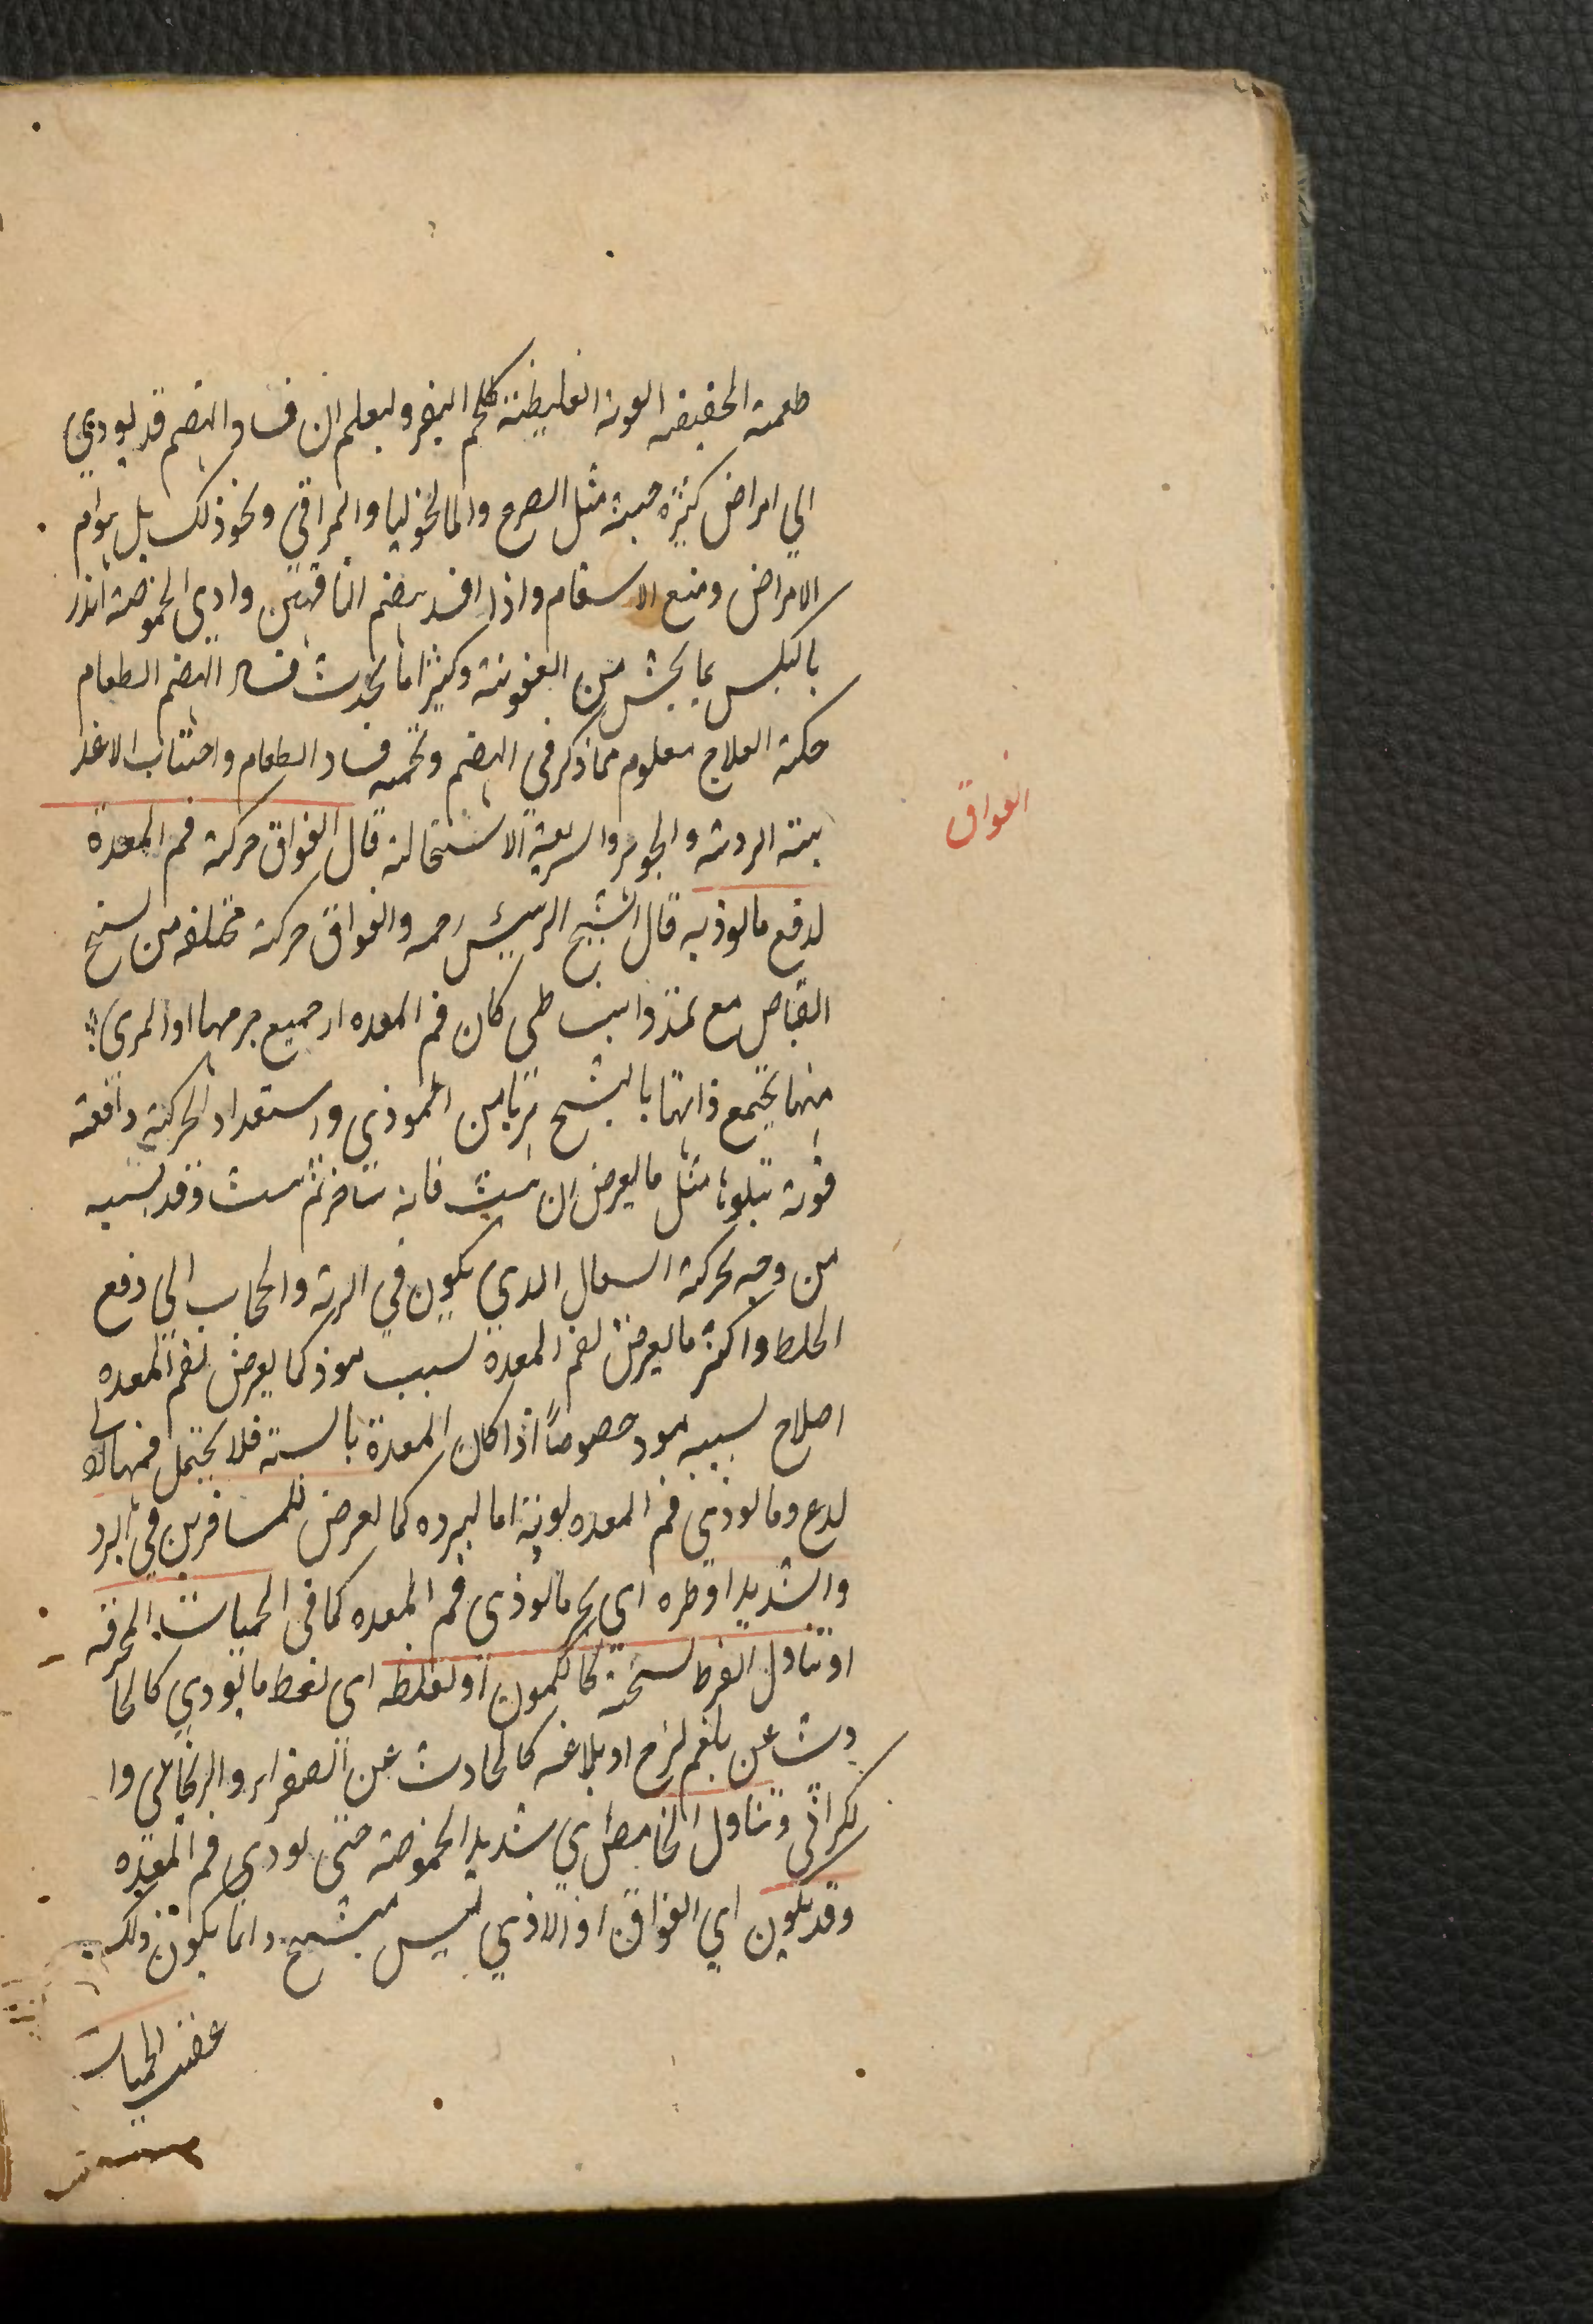 طعمة الخفيفة القوية الغليظة كلحم البقر وليعلم ان فساد الهضم قد يودي
الي امراض كثيرة خبيثة مثل الصرع والمالنخوليا والمراقي ونحو ذلك بل هو ام
الامراض ومنبع الاسقام واذا افسد هضم الناقهين وادي الحموضة انذر
بالنكس بما يحش من العفونة وكثيرا ما يحدث فساد الهضم الطعام
حكة العلاج معلوم مما ذكر في الهضم وتخمه فساد الطعام واجتناب الاغذ
الفواق
ية الردية والجوهر والسريعة الاستحالة قال الفواق حركة فم المعدة
لدفع ما يوذيه قال الشيخ الرييس رحمه والفواق حركة مختلفه من تشنج
انقباض مع تمدد وانبساطي كان فم المعده او جميع جرمها او المري
منها يجتمع ذاتها بالتشنج هربا من الموذي واستعداد الحركة دافعة
قوية تتلوها مثل ما يعرض ان يثب فانه يتاخر ثم يثب وقد يشبه
من وجه لحركة السعال الذي يكون في الرية والحجاب الي دفع
الخلط واكثر ما يعرض لفم المعدة لسبب موذ كما يعرض لفم المعده
اختلاج لسببه موذ خصوصاً اذا كان المعدة يابسة فلا يحتمل فمها لا
لدع وما يوذي فم المعده لونية اما لبرده كما يعرض للمسافرين في البرد
والشديد او حره اي بحر ما يوذي فم المعده كما في الحميات المحرقة
او تناول المفرط لسخنة كالكمون او لغلظه اي لغلظ ما يودي كالحا
دث عن بلغم لزج او بلاغه كالحادث عن الصفراء والزنجاري وا
لكراثي وتناول الحامض اي شديد الحموضة حتى يوذي فم المعده
وقد يكون اي الفواق او الاذي ليس بتشنج وانما يكون ذلك
عقيب الحميات